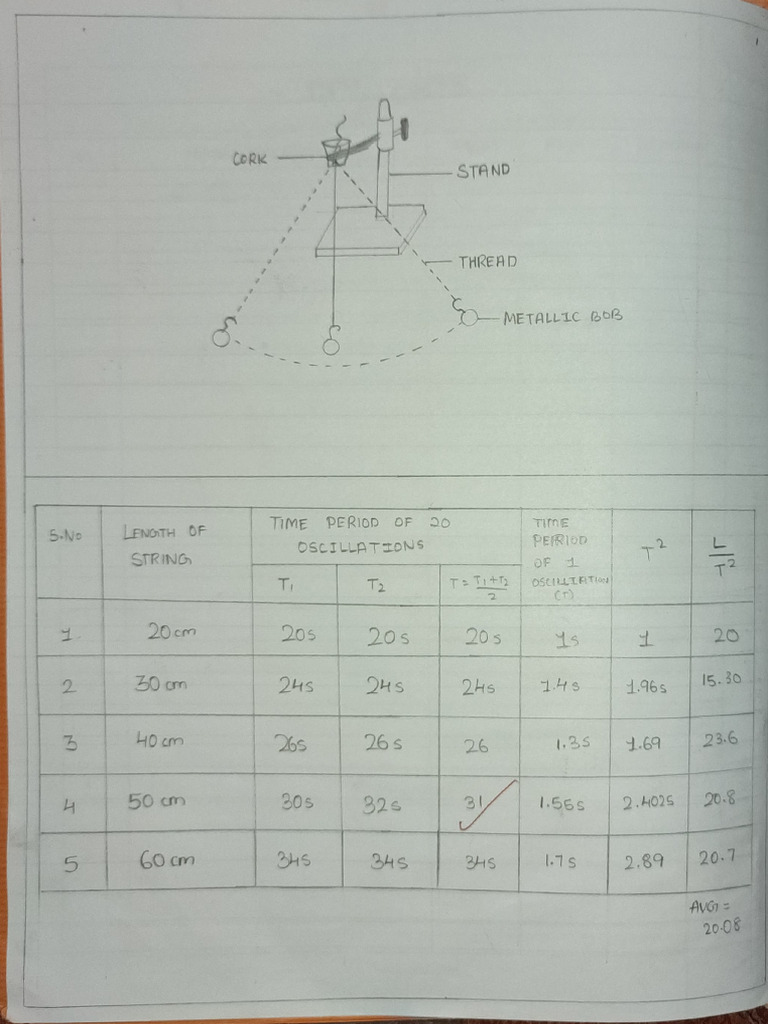 CORK
STAND
THREAD
METALLIC BOB
S.No LENGTH OF STRING TIME PERIOD OF 20 OSCILLATIONS TIME PERIOD OF 1 OSCILLATION (T) T² L/T²
T₁ T₂ T = T₁+T₂/2
1 20cm 20s 20s 20s 1s 1 20
2 30cm 24s 24s 24s 1.4s 1.96s 15.30
3 40cm 26s 26s 26 1.3s 1.69 23.6
4 50cm 30s 32s 31 1.55s 2.402s 20.8
5 60cm 34s 34s 34s 1.7s 2.89 20.7
AVG =
20.08